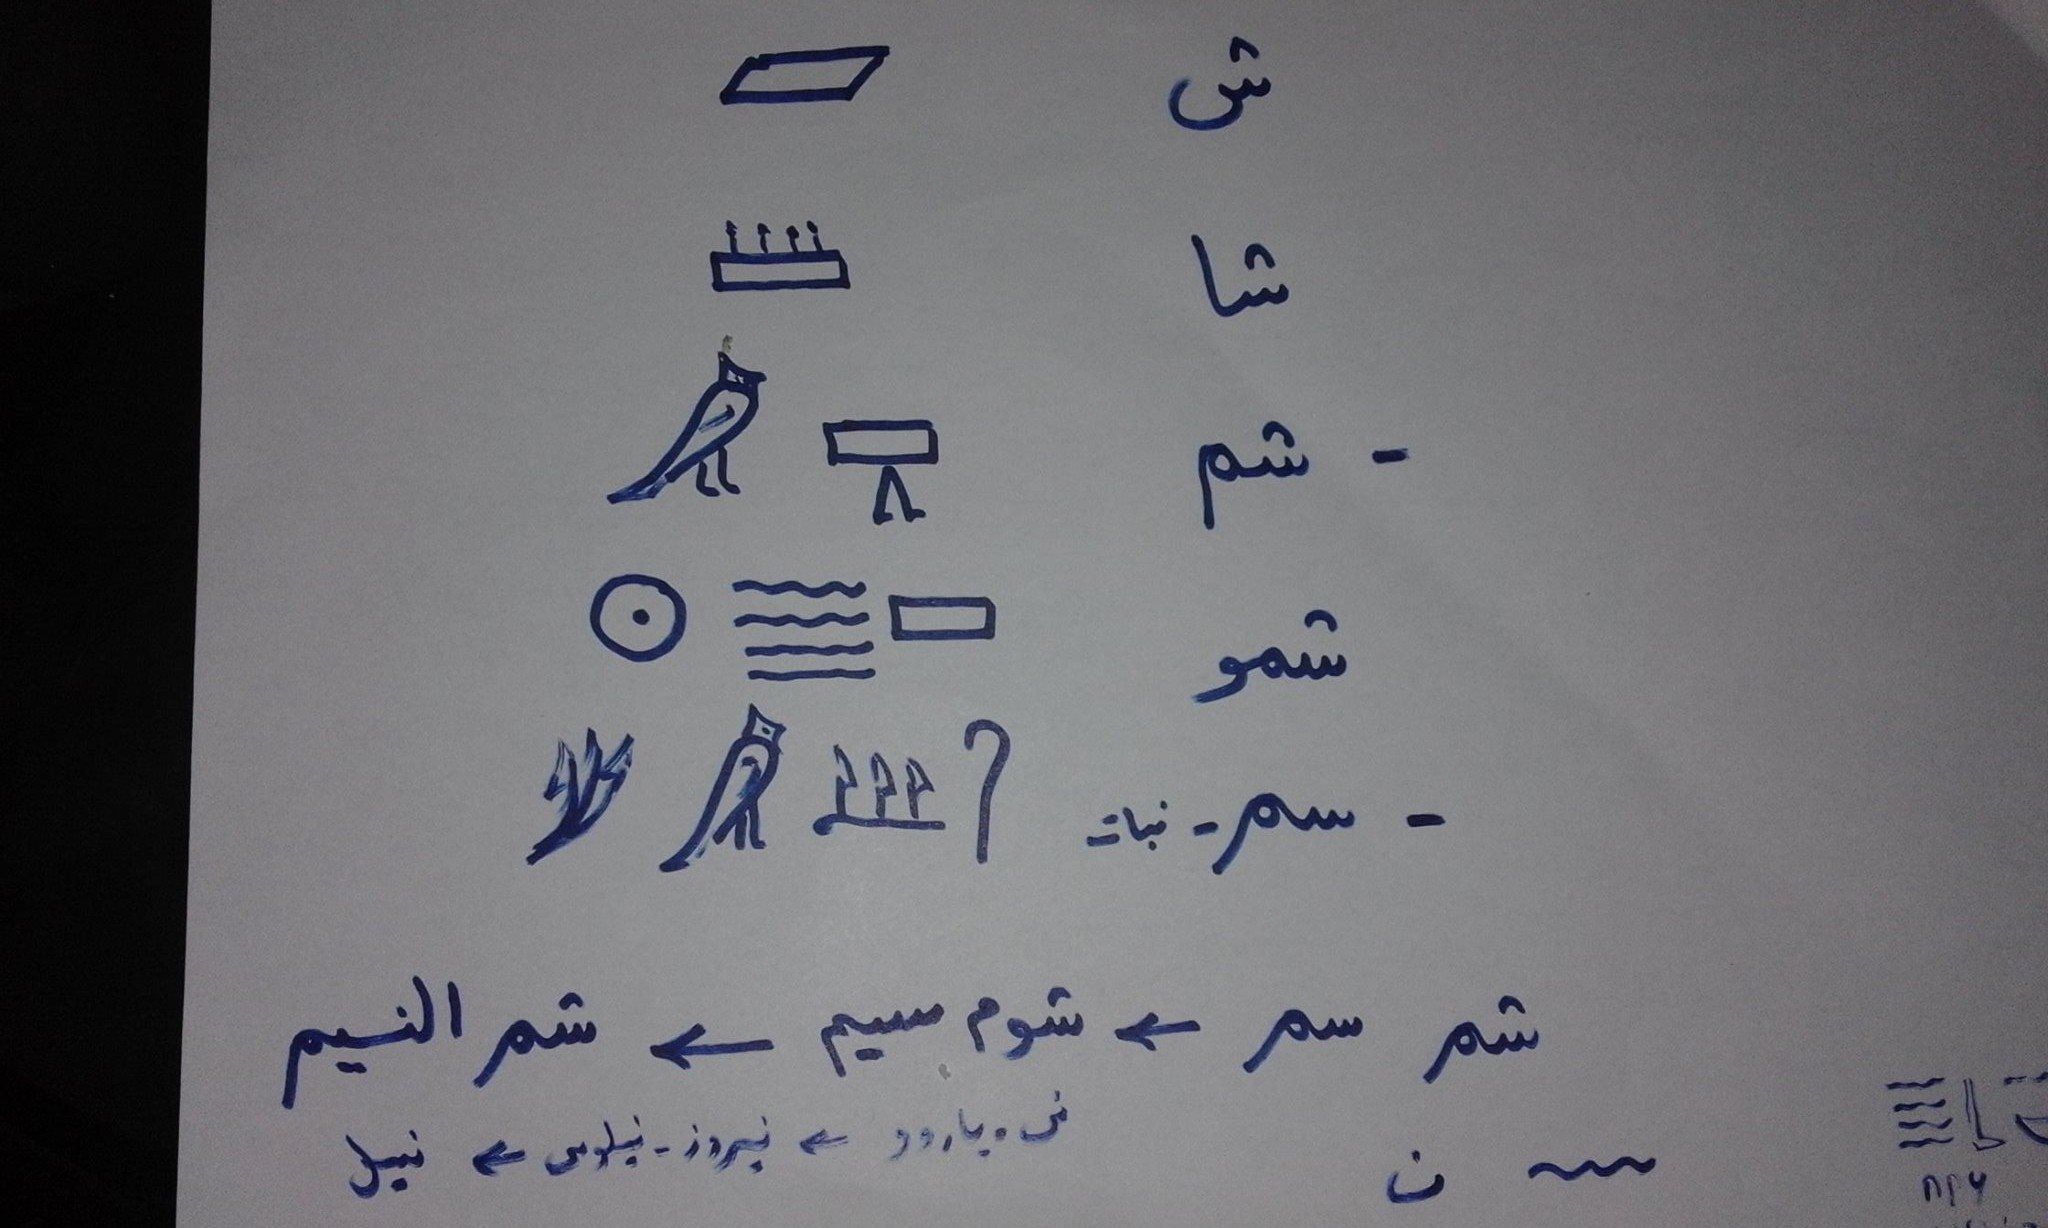 ش
شا
- شم
شمو
- سم - نبات
شم سم ← شوم سيم ← شم النسيم
نى - ياروو ← نيروز - نيلوس ← نيل
ن